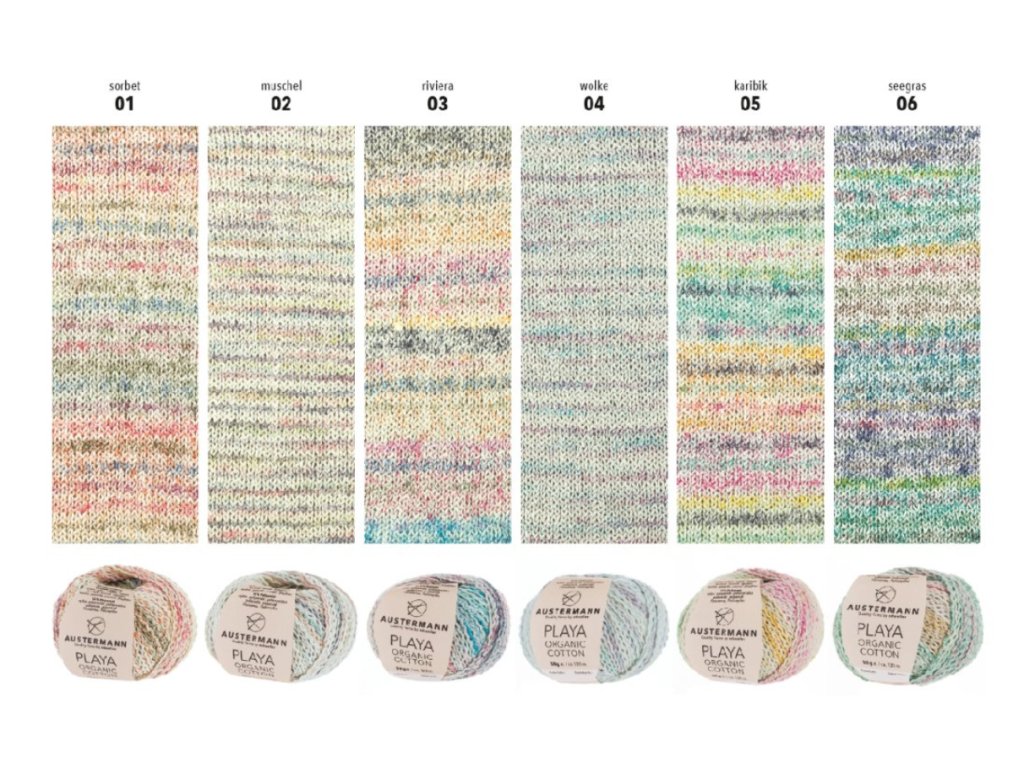 sorbet
01
muschel
02
riviera
03
wolke
04
karibik
05
seegras
06
AUSTERMANN
PLAYA
ORGANIC
COTTON
AUSTERMANN
PLAYA
ORGANIC
COTTON
AUSTERMANN
PLAYA
ORGANIC
COTTON
AUSTERMANN
PLAYA
ORGANIC
COTTON
AUSTERMANN
PLAYA
ORGANIC
COTTON
AUSTERMANN
PLAYA
ORGANIC
COTTON